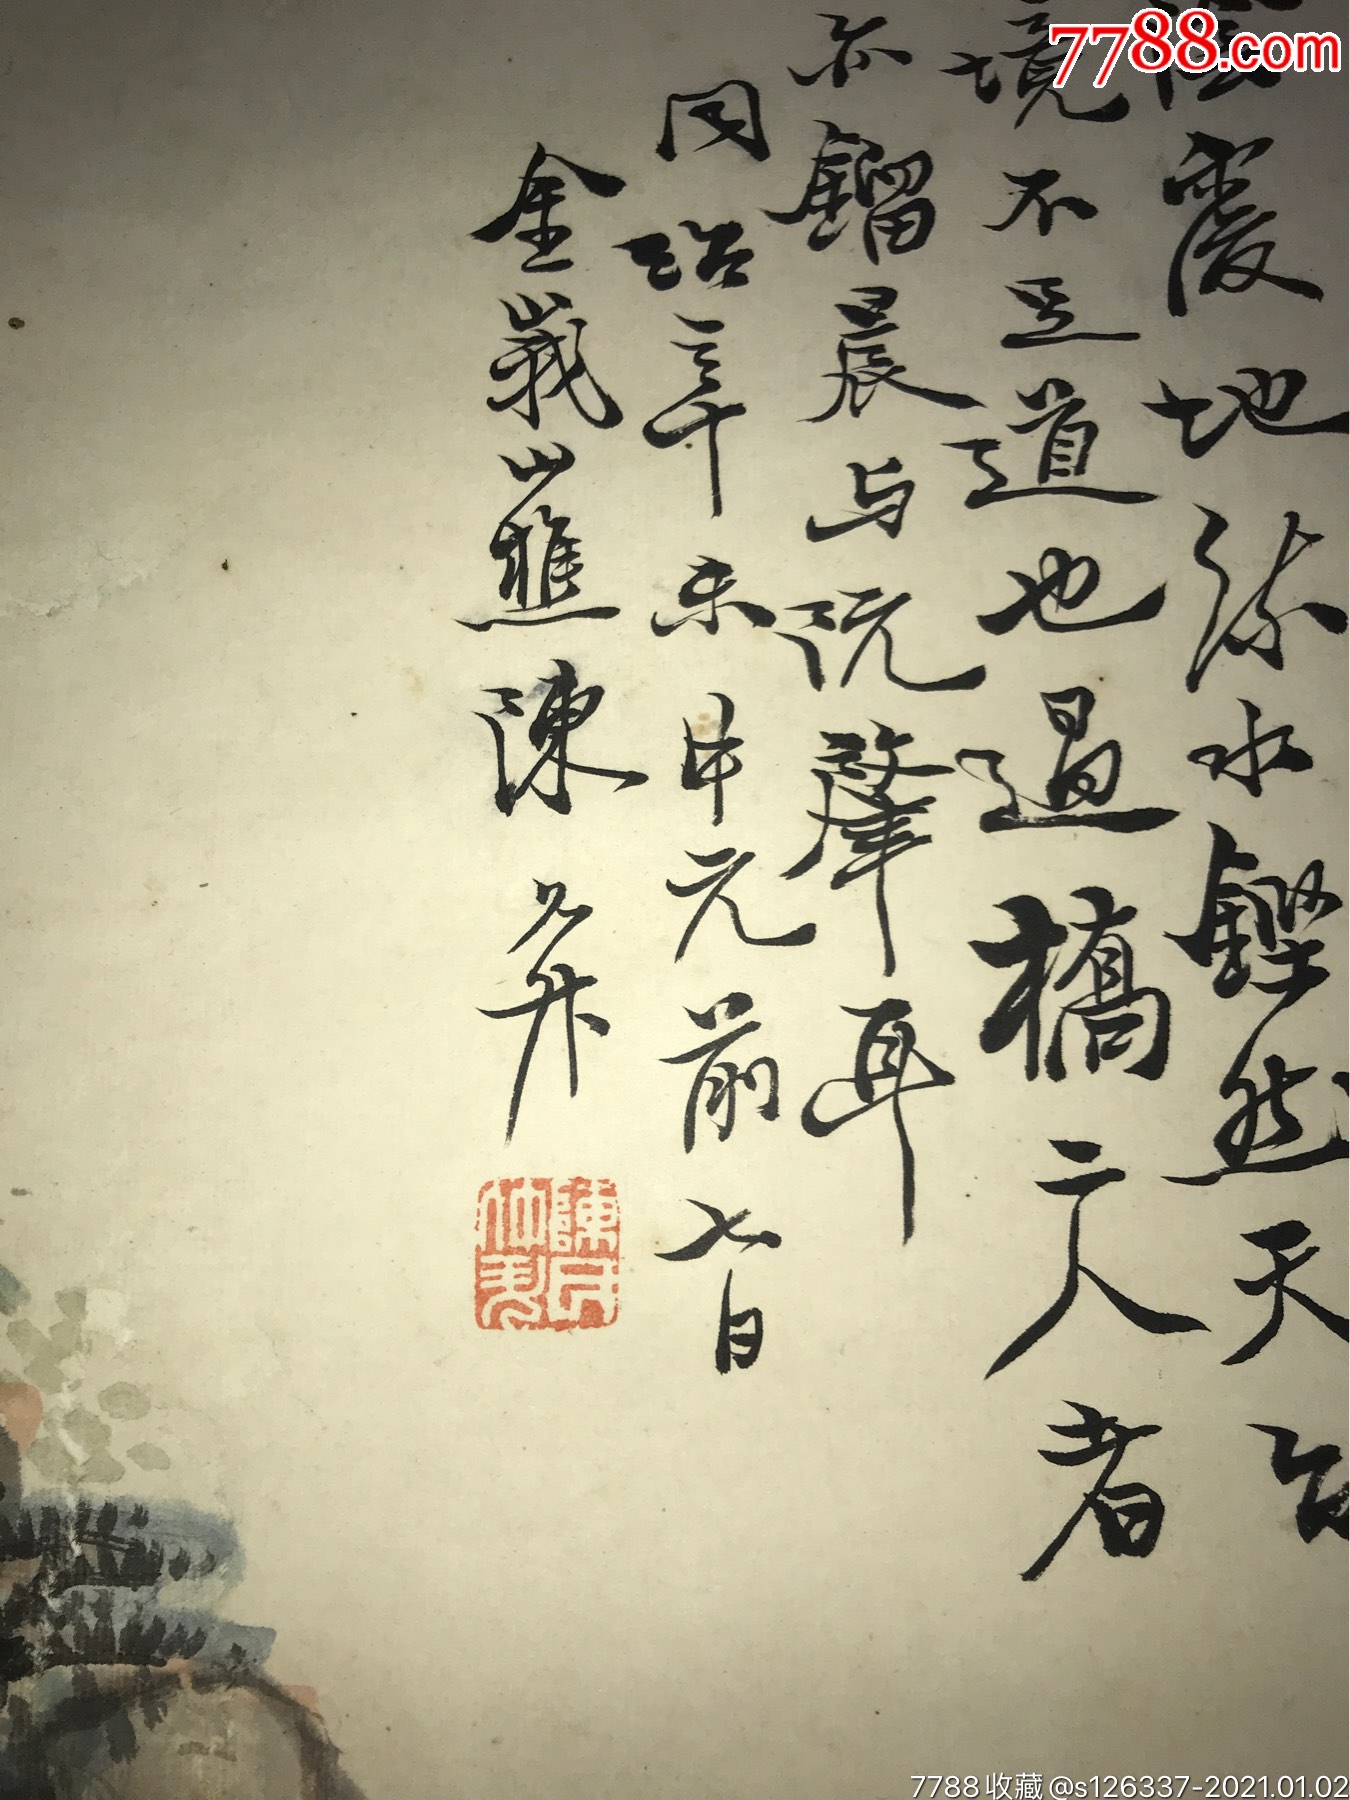 7788.com
覆地流水鏗然天台
境不足道也過橋二人者
亦鎦晨与阮肇耳
同治辛未中元前七日
金峩山樵陳允升
7788收藏@s126337-2021.01.02